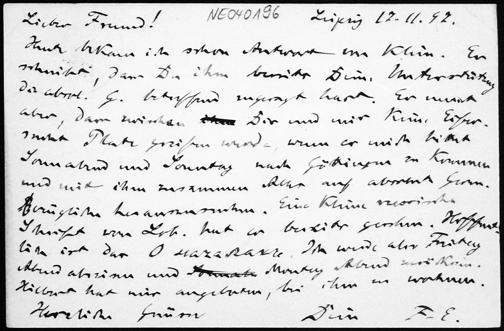 Lieber Freund! NE040196 Leipzig 17.11.97.
Heute bekam ich schon Antwort von Klein. Er
schreibt, dass Du ihm bereits Deine Unterstützung
die absol. G. betreffend zugesagt hast. Er meint
aber, dass zwischen Dir und mir keine Eifer-
sucht Platz greifen werde, wenn er mich bittet
Sonnabend und Sonntag nach Göttingen zu kommen
und mit ihm zusammen Alles auf absolute Geom.
Bezügliche herauszusuchen. Eine kleine russische
Schrift von Lob. hat er bereits gesehen. Hoffent-
lich ist das O . Ich werde also Freitag
Abend abreisen und Montag Abend zurück sein.
Hilbert hat mir angeboten, bei ihm zu wohnen.
Herzliche Grüsse Dein F. E.